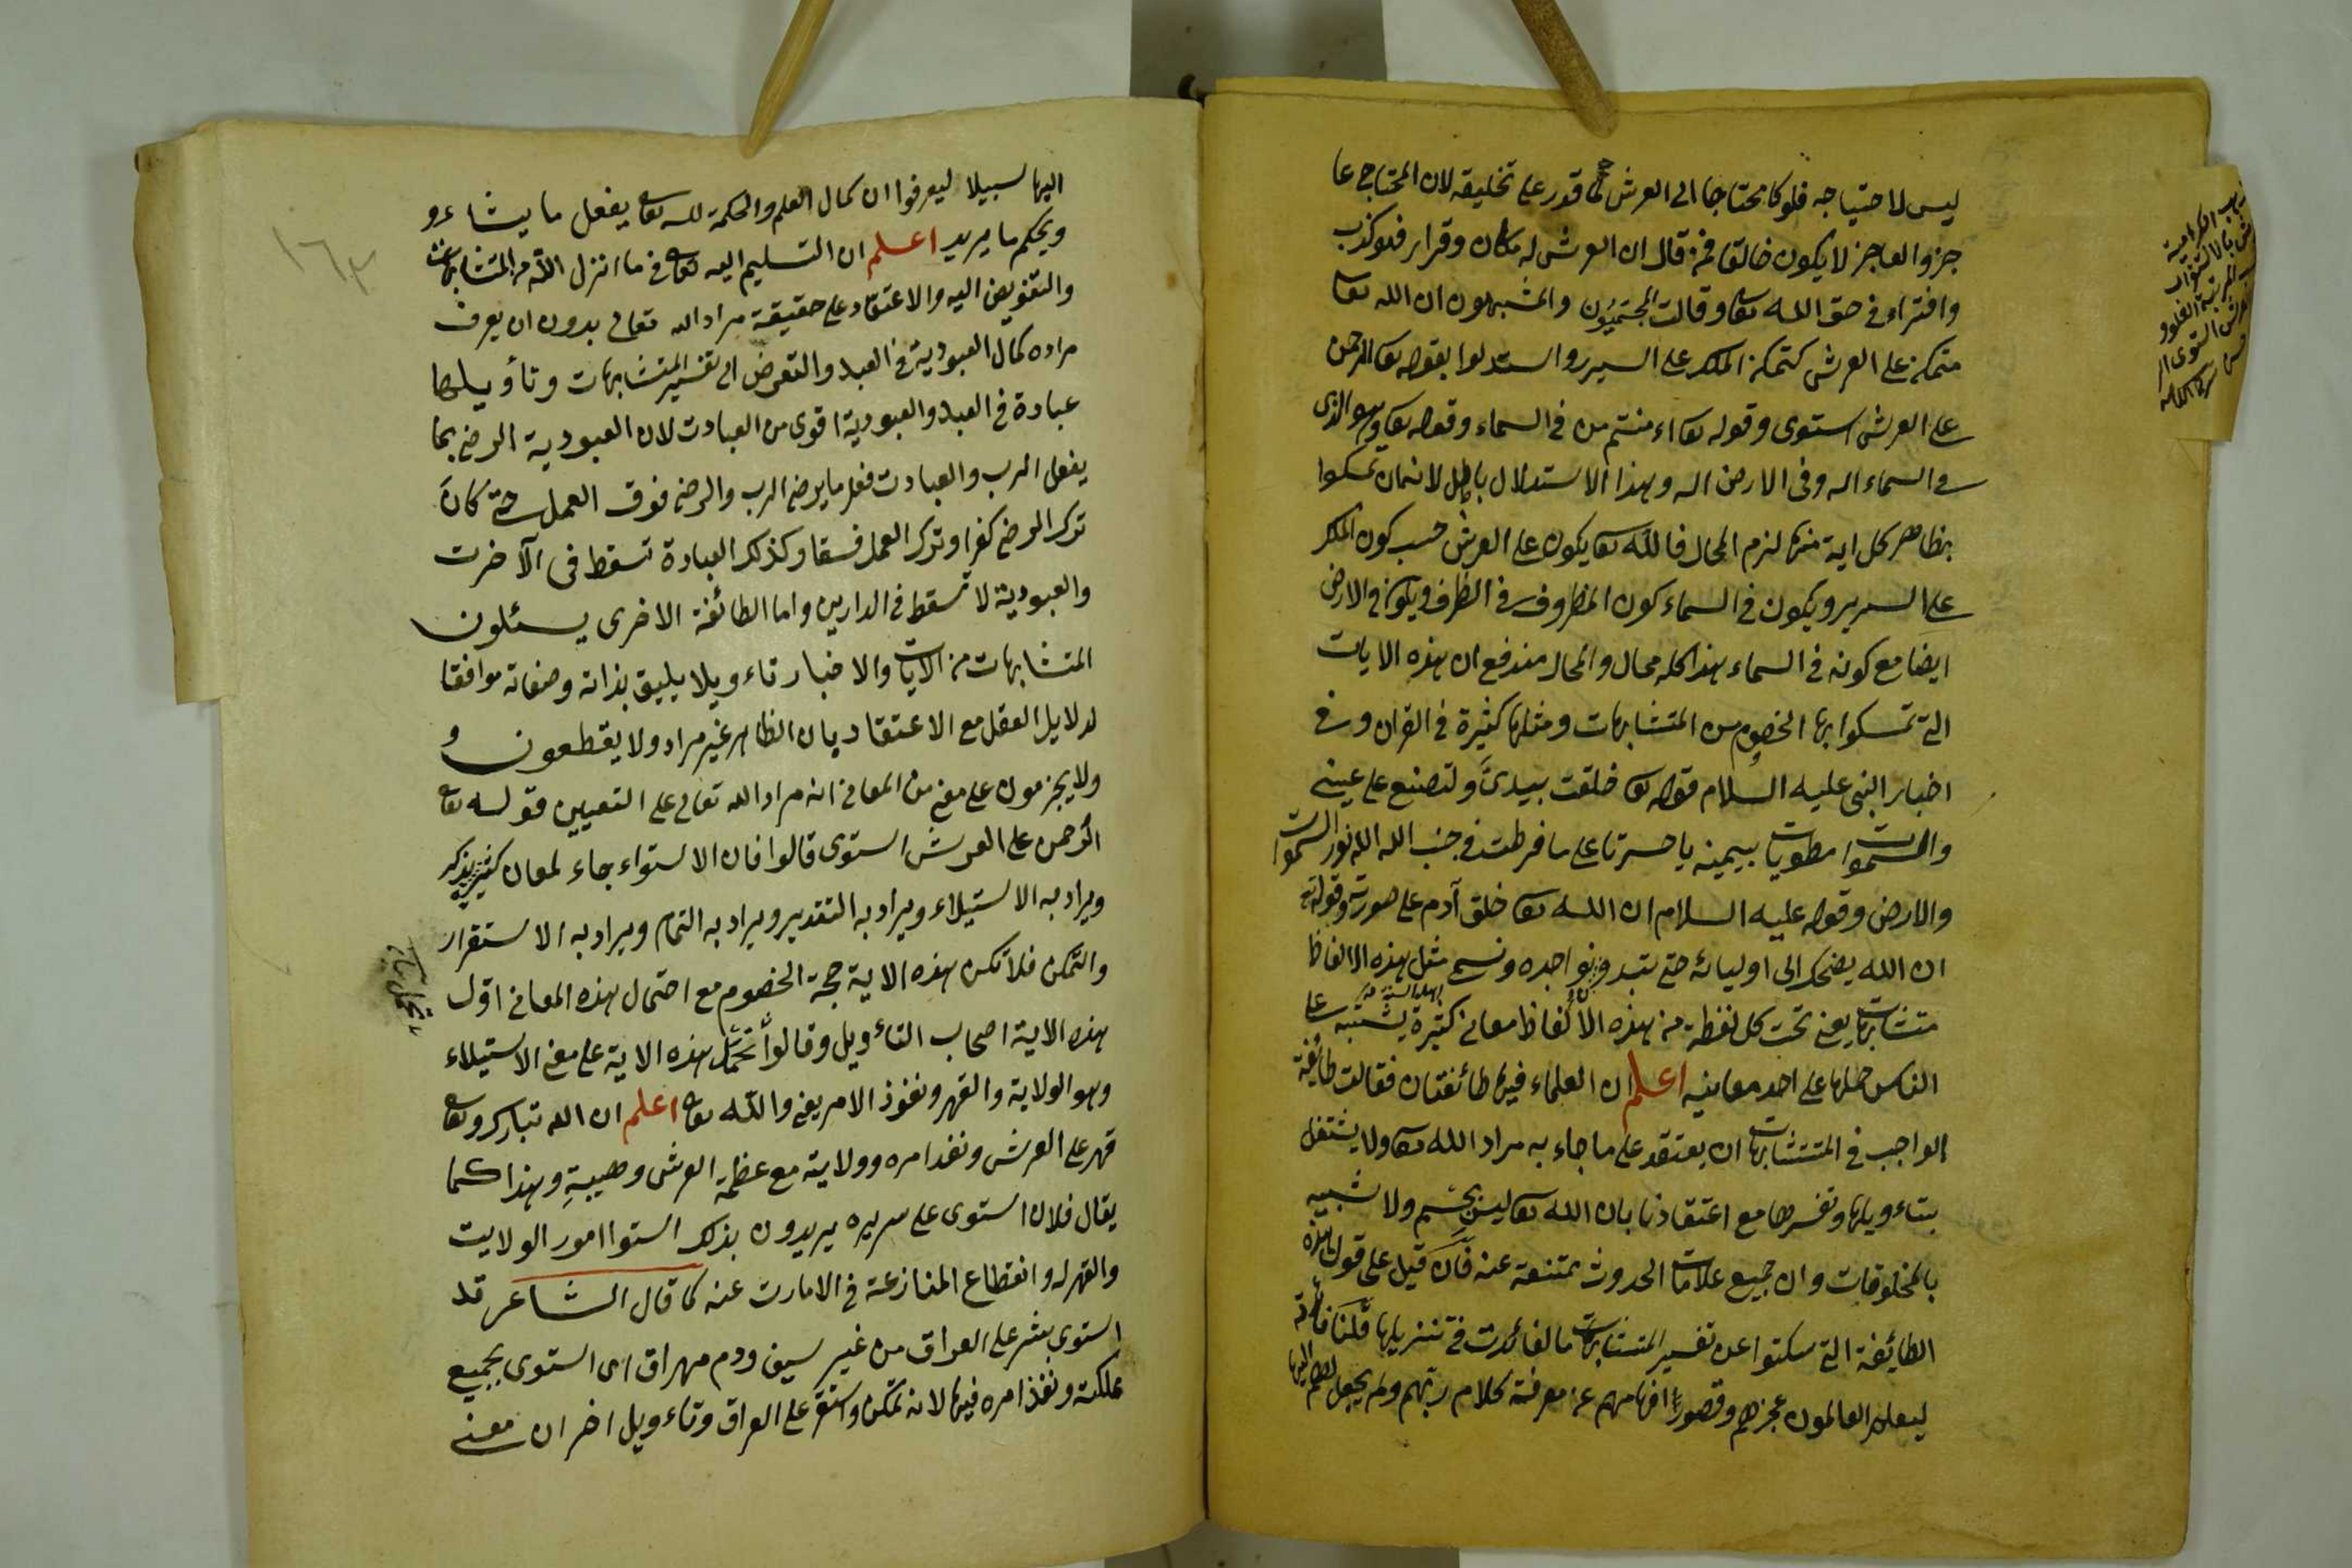 ليس لاحتياجه فلو كا محتاجا الى العرش لما قدور على تخليقه لان المحتاج عا
جز والعاجز لا يكون خالقا فمن قال ان العرش له مكان وقرار فلو كذب
وافتراء في حق الله تعا وقالت المجتميون والمشبهون ان الله تعا
متمكن على العرش كتمكن الملك على السير واستدلوا بقوله تعا الرحمن
على العرش استوى وقوله تعا ء امنتم من في السماء وقوله تعا وهو الذى
في السماء اله وفى الارض اله وهذا الاستدلال باطل لانهمان تمسكوا
بظاهر كل اية منها لزم المحال فالله تعا يكون على العرش حسب كون الملك
على السرير ويكون في السماء كون المظروف في الظرف ويكون في الارض
ايضا مع كونه في السماء هذا كله محال والمحال مندفع ان هذه الايات
التى تمسكوا بها الخصوم من المتشابهات ومثلها كثيرة في القران وفي
اخبار النبى عليه السلام قوله تعا خلقت بيدى ولتصنع على عينى
والسموات مطويات بيمينه يا حسرتا على ما فرطت في جنب الله الله نور السموات
والارض وقوله عليه السلام ان الله تعا خلق آدم على صورته وقوله
ان الله يضحك الى اوليائه حتى تبدو نواجده ونسمى مثل هذه الالفاظ
متشابهات يعنى تحت كل لفظة من هذه الالفاظ معانى كثيرة يشتبه على
الناس حملها على احد معانيه اعلم ان العلماء فيها طائفتان فقالت طايفة
الواجب في المتشابهات ان يعتقد على ما جاء به مراد الله تعا ولا يشتغل
بتاءويلها وتفسرها مع اعتقادنا بان الله تعا ليس بجسم ولا شبيه
بالمخلوقات وان جميع علامات الحدوث ممتنعة عنه فان قيل على قول هذه
الطايفة التى سكتوا عن تفسير المتشابهات ما لفائدت في تنزيلها قلنا فائدته
ليعلم العالمون عجزهم وقصور افهامهم عن معرفة كلام ربهم ولم يجعل لهم
اليها سبيلا ليعرفوا ان كمال العلم والحكمة لله تعا يفعل ما يشاء و
ويحكم ما يريد اعلم ان التسليم اليه تعا في ما انزل الله من المتشابهات
والتفويض اليه والاعتقاد على حقيقة مراد الله تعالى بدون ان يعرف
مراده كمال العبودية في العبد والتعرض الى تفسير المتشابهات وتأويلها
عبادة في العبد والعبودية اقوى من العبادت لان العبودية الرضى بما
يفعل الرب والعبادت فعل ما يرضى الرب والرضى فوق العمل حتى كان
ترك الرضى كفرا وترك العمل فسقا وكذلك العبادة تسقط فى الآخرت
والعبودية لا تسقط في الدارين واما الطائفة الاخرى يسئلون
المتشابهات من الايات والاخبار تاءويلا يليق بذاته وصفاته موافقا
لدلايل العقل مع الاعتقاد بان الظاهر غير مراد ولا يقطعون و
ولا يجزمون على معنى من المعانى انه مراد الله تعالى على التعيين قوله تعا
الرحمن على العرش استوى قالوا فان الاستواء جاء لمعان كثيرة يذكر
ويراد به الاستيلاء ويراد به التقدير ويراد به التمام ويراد به الاستقرار
والتمكن فلا تكن هذه الاية حجة الخصوم مع احتمال هذه المعانى اوّل
هذه الاية اصحاب التاءويل وقالوا نحمل هذه الاية على معنى الاستيلاء
وهو الولاية والقهر ونفوذ الامر يعنى والله تعا اعلم ان الله تبارك وتعا
قهر على العرش ونفد امره وولايته مع عظمة العرش وهيبةِ وهذا كما
يقال فلان استوى على سريره يريدون بذلك استوا امور الولايت
والقهر له وانقطاع المنازعة في الامارت عنه كما قال الشاعر قد
استوى بشر على العراق من غير سيف ودم مهراق اى استوى بجميع
مملكته ونفذ امره فيها لانه تمكن واستقر على العراق وتاءويل اخر ان معنى
١٦٣